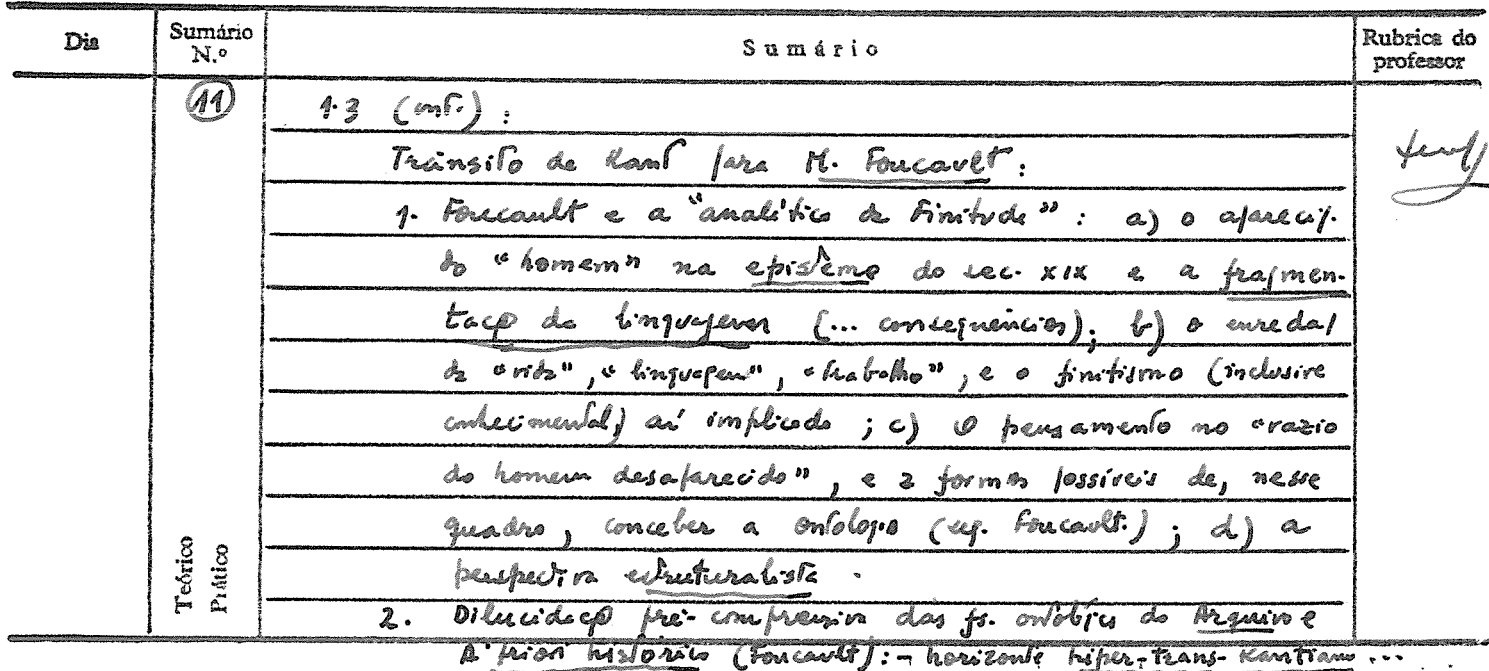 Dia Sumário N.º Sumário Rubrica do professor
11 1.3 (cont.) :
Trânsito de Kant para M. Foucault :
1. Foucault e a "analítica da Finitude" : a) o apareci/.
do "homem" na episteme do sec. XIX e a fragmen-
tação da linguagem (... consequências); b) o enreda/
da "vida", "linguagem", "trabalho", e o finitismo (inclusive
conhecimental) aí implicado ; c) O pensamento no "vazio
do homem desaparecido", e 2 formas possíveis de, nesse
quadro, conceber a ontologia (seg. Foucault.) ; d) a
perspectiva estruturalista .
Teórico Prático
2. Dilucidação pré-compreensiva das fs. do Arquivo e
A priori histórico (Foucault) : - horizonte hiper-trans-Kantiano ...